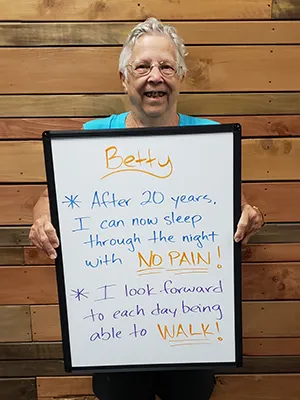 Betty
* After 20 years,
I can now sleep
through the night
with NO PAIN!
* I look forward
to each day being
able to WALK!